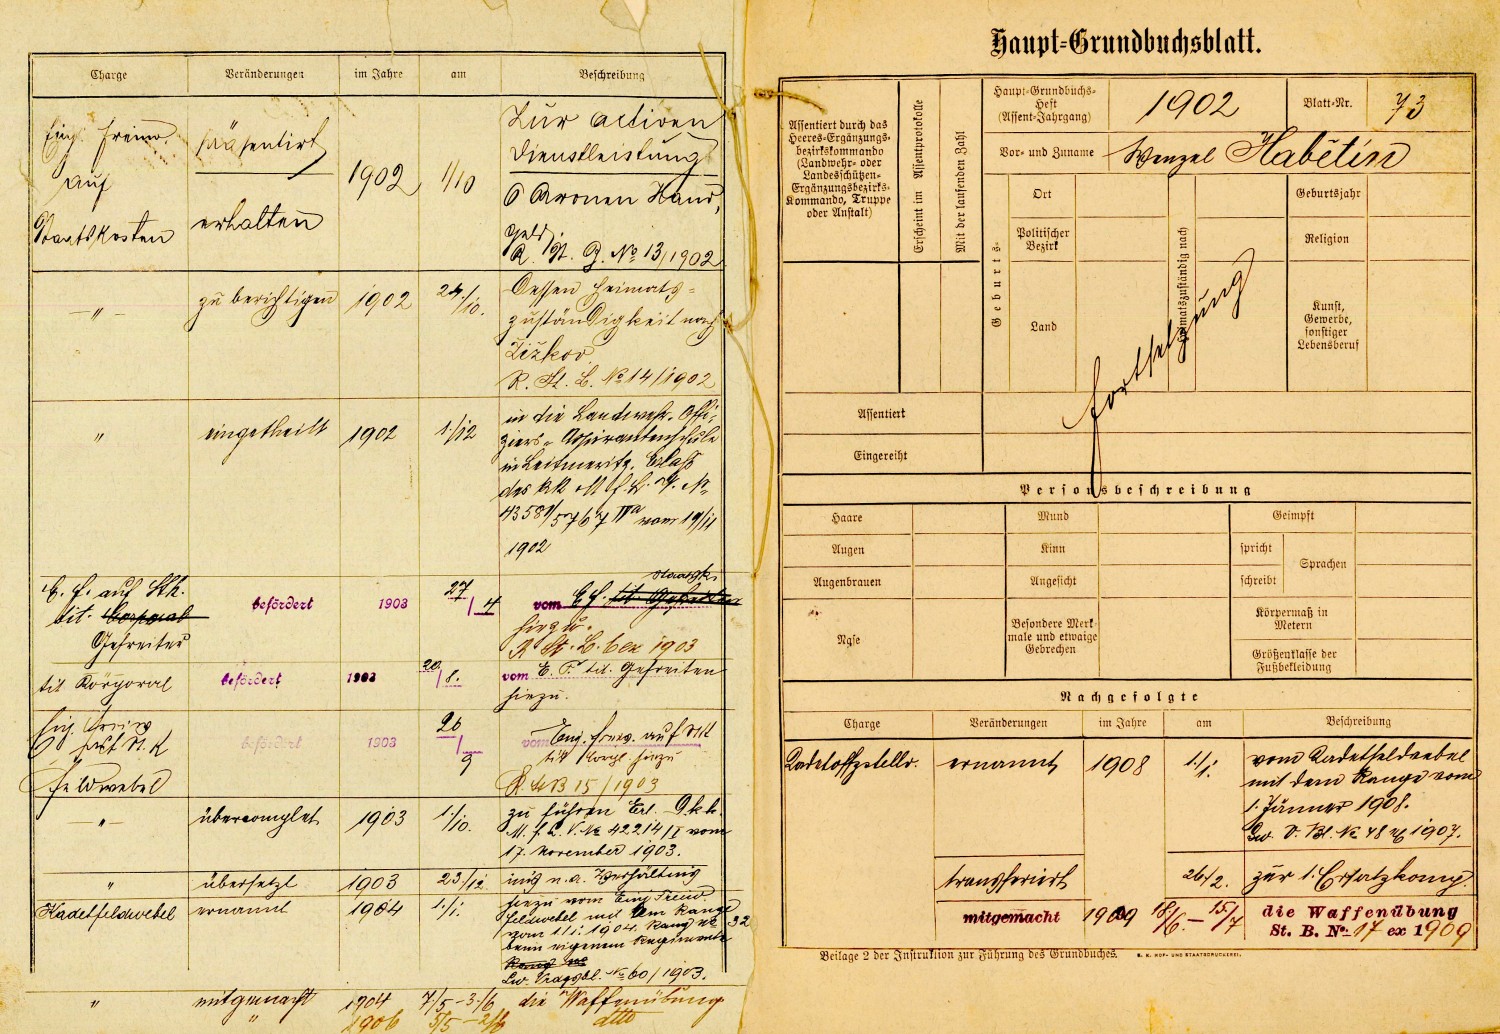 Charge Veränderungen im Jahre am Beschreibung
Einj. Freiw.
auf
Staatskosten
präsentirt
erhalten
1902
1/10
Zur activen
Dienstleistung
6 Kronen Hand,
geld.
R. St. B. No 13/1902
-"-
zu berichtigen
1902
24./10.
Dessen Heimats-
zuständigkeit nach
Žižkov
R. St. B. No 14/1902
"
eingetheilt
1902
1./12
in die Landwehr-Offi-
ziers-Aspirantenschule
in Leitmeritz. Erlaß
des kk M. f. L. V. No
1902
E. f. auf Stk.
tit. Corporal
Gefreiter
befördert
1903
27/4
vom E. f.
hiezu.
R. St. B. 6 ex 1903
tit Korporal
befördert
1903
20/8.
vom E. F. tit. Gefreiten
hiezu.
Einj. Freiw
auf St. K
Feldwebel
befördert
1903
20/9
vom Einj. Freiw. auf Stk
tit Korpl. hiezu
R. St. B 15/1903
-"-
übercomplet
1903
1./10.
zu führen Erl. D. k. k.
M. f. L. V. No 42214/I vom
17. November 1903.
"
übersetzt
1903
23/12
ins n. a. Verhältnis
Kadetfeldwebel
ernannt
1904
1./1.
hiezu vom Einj. Freiw.
Feldwebel mit dem Range
vom 1/1. 1904. Rang No 32
beim eigenen Regimente
Lw. Vdgsbl. No 60/1903.
"
mitgemacht
1904
7/5-3./6
die Waffenübung
"
1906
5/5-2/6
dtto
Haupt-Grundbuchsblatt.
Assentiert durch das
Heeres-Ergänzungs-
bezirkskommando
(Landwehr- oder
Landesschützen-
Ergänzungsbezirks-
Kommando, Truppe
oder Anstalt)
Erscheint im Assentprotokolle
Mit der laufenden Zahl
Haupt-Grundbuchs-
Heft
(Assent-Jahrgang)
1902
Blatt-Nr.
73
Vor- und Zuname
Wenzel Habětín
Geburts-
Ort
Politischer
Bezirk
Land
Heimatszuständig nach
Geburtsjahr
Religion
Kunst,
Gewerbe,
sonstiger
Lebensberuf
Fortsetzung
Assentiert
Eingereiht
Personsbeschreibung
Haare
Mund
Geimpft
Augen
Kinn
spricht
Sprachen
Augenbrauen
Angesicht
schreibt
Nase
Besondere Merk-
male und etwaige
Gebrechen
Körpermaß in
Metern
Größenklasse der
Fußbekleidung
Nachgefolgte
Charge Veränderungen im Jahre am Beschreibung
Kadetoffzstellv.
ernannt
1908
1./1.
vom Kadetfeldwebel
mit dem Range vom
1. Jänner 1908.
Lw. V. Bl. No 48 ex 1907.
transferiert
26/2.
zur 1. Ersatzkomp.
mitgemacht
1909
18/6.-15/7
die Waffenübung
St. B. No. 17 ex 1909
Beilage 2 der Instruktion zur Führung des Grundbuches.
K. K. HOF- UND STAATSDRUCKEREI.